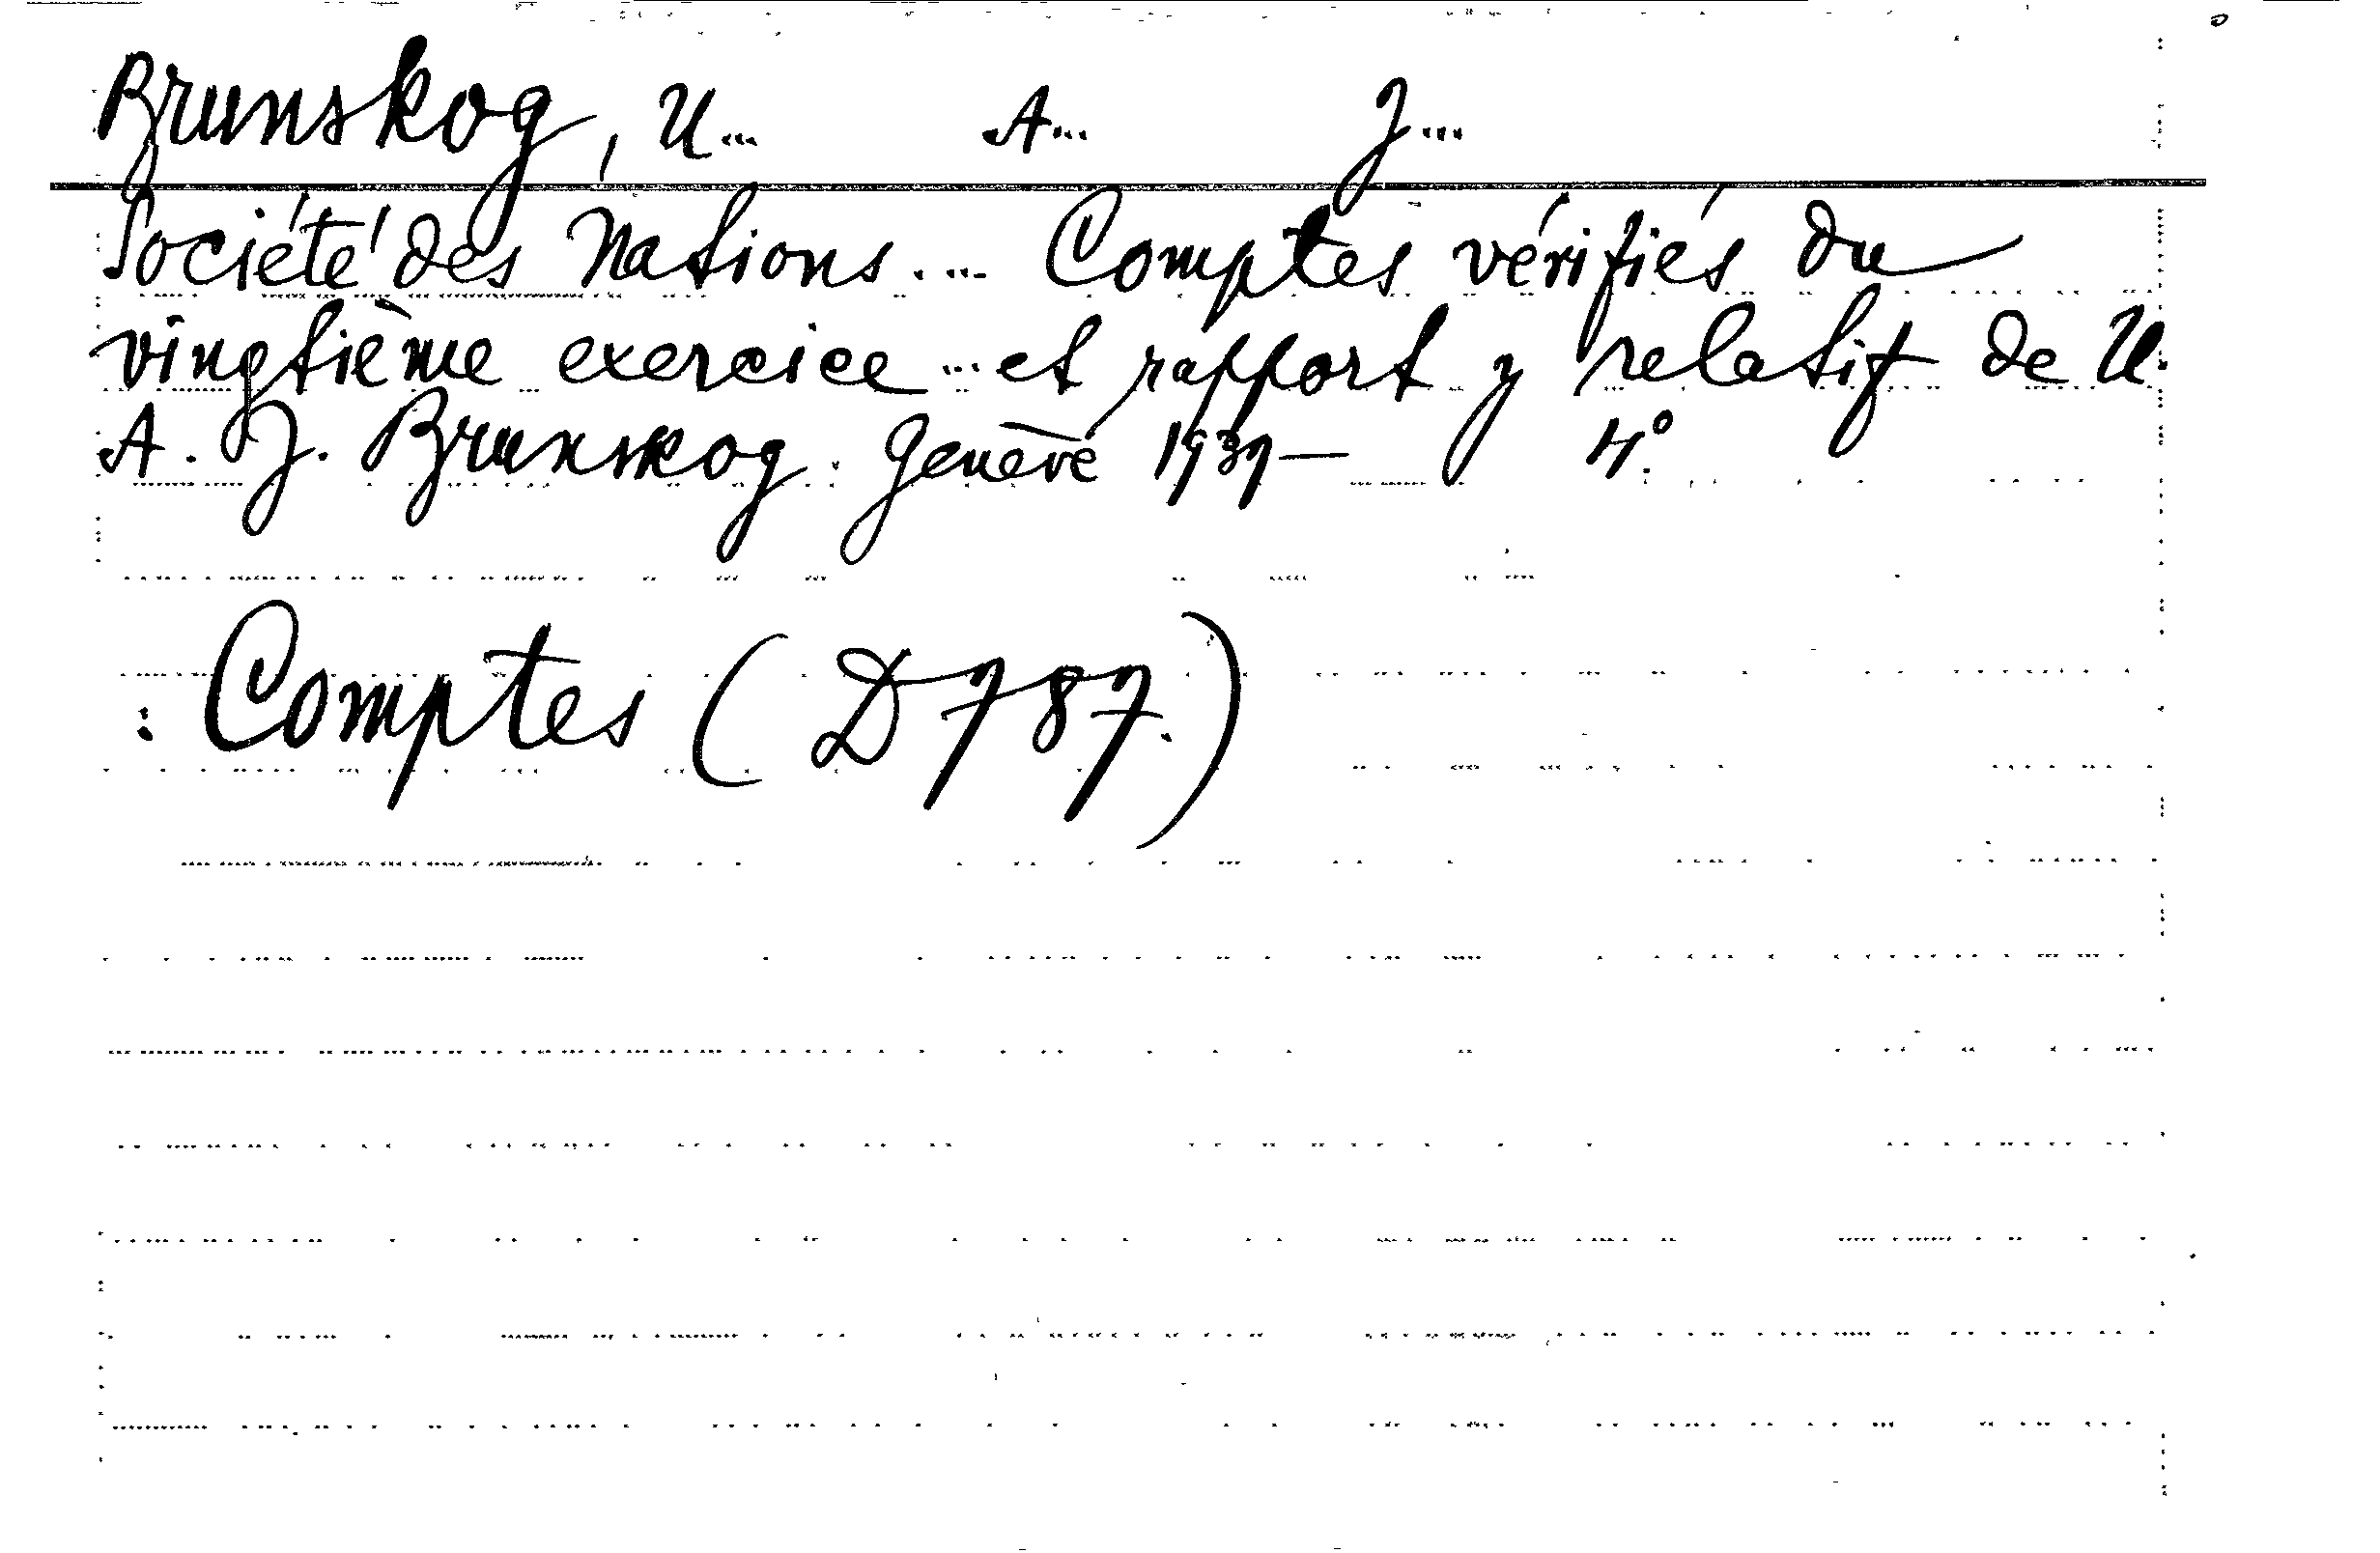 Brunskog, U... A... J...
Société des Nations.... Comptes vérifiés du
vingtième exercice ... et rapport y relatif de U.
A. J. Brunskog. Genève 1939— 4°.
: Comptes (D787.)